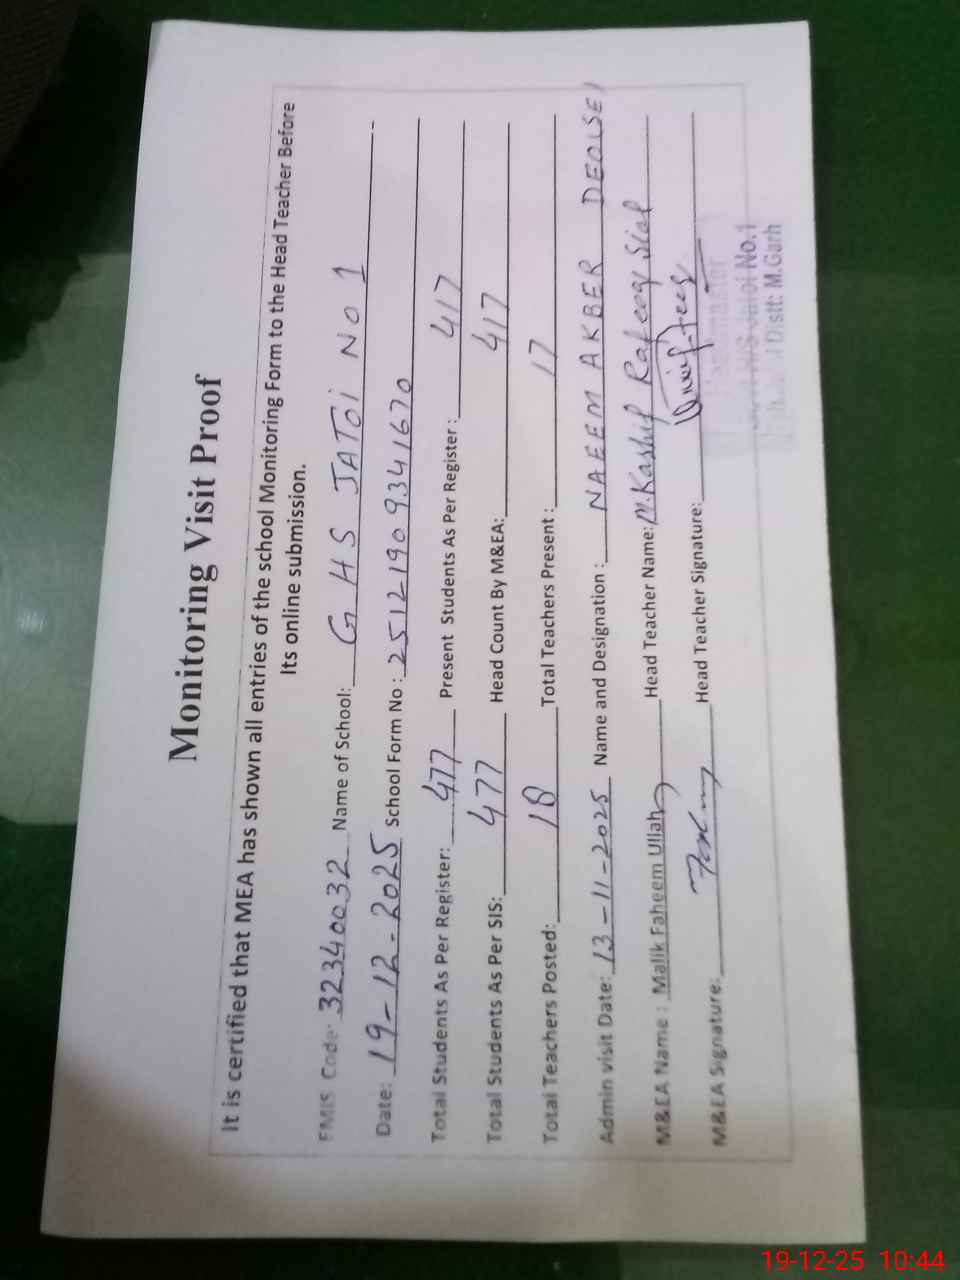 Monitoring Visit Proof
It is certified that MEA has shown all entries of the school Monitoring Form to the Head Teacher Before
Its online submission.
EMIS Code: 32340032 Name of School: G H S JATOi NO 1
Date: 19-12-2025 School Form No: 25121909341670
Total Students As Per Register: 477 Present Students As Per Register: 417
Total Students As Per SIS: 477 Head Count By M&EA: 417
Total Teachers Posted: 18 Total Teachers Present: 17
Admin visit Date: 13-11-2025 Name and Designation: NAEEM AKBER DEO(SE)
M&EA Name: Malik Faheem Ullah Head Teacher Name: M.Kashif Rafeeq Sial
M&EA Signature: Head Teacher Signature:
Headmaster
Jatoi No.1
Distt: M.Garh
19-12-25 10:44